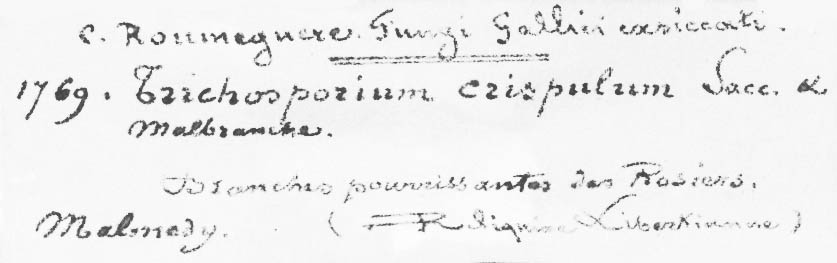 C. Roumeguere. Fungi Gallici exsiccati.
1769. Trichosporium crispulum Sacc. &
Malbranche.
Branches pourrissantes des Rosiers.
Malmedy. (Reliquiae Libertianae)